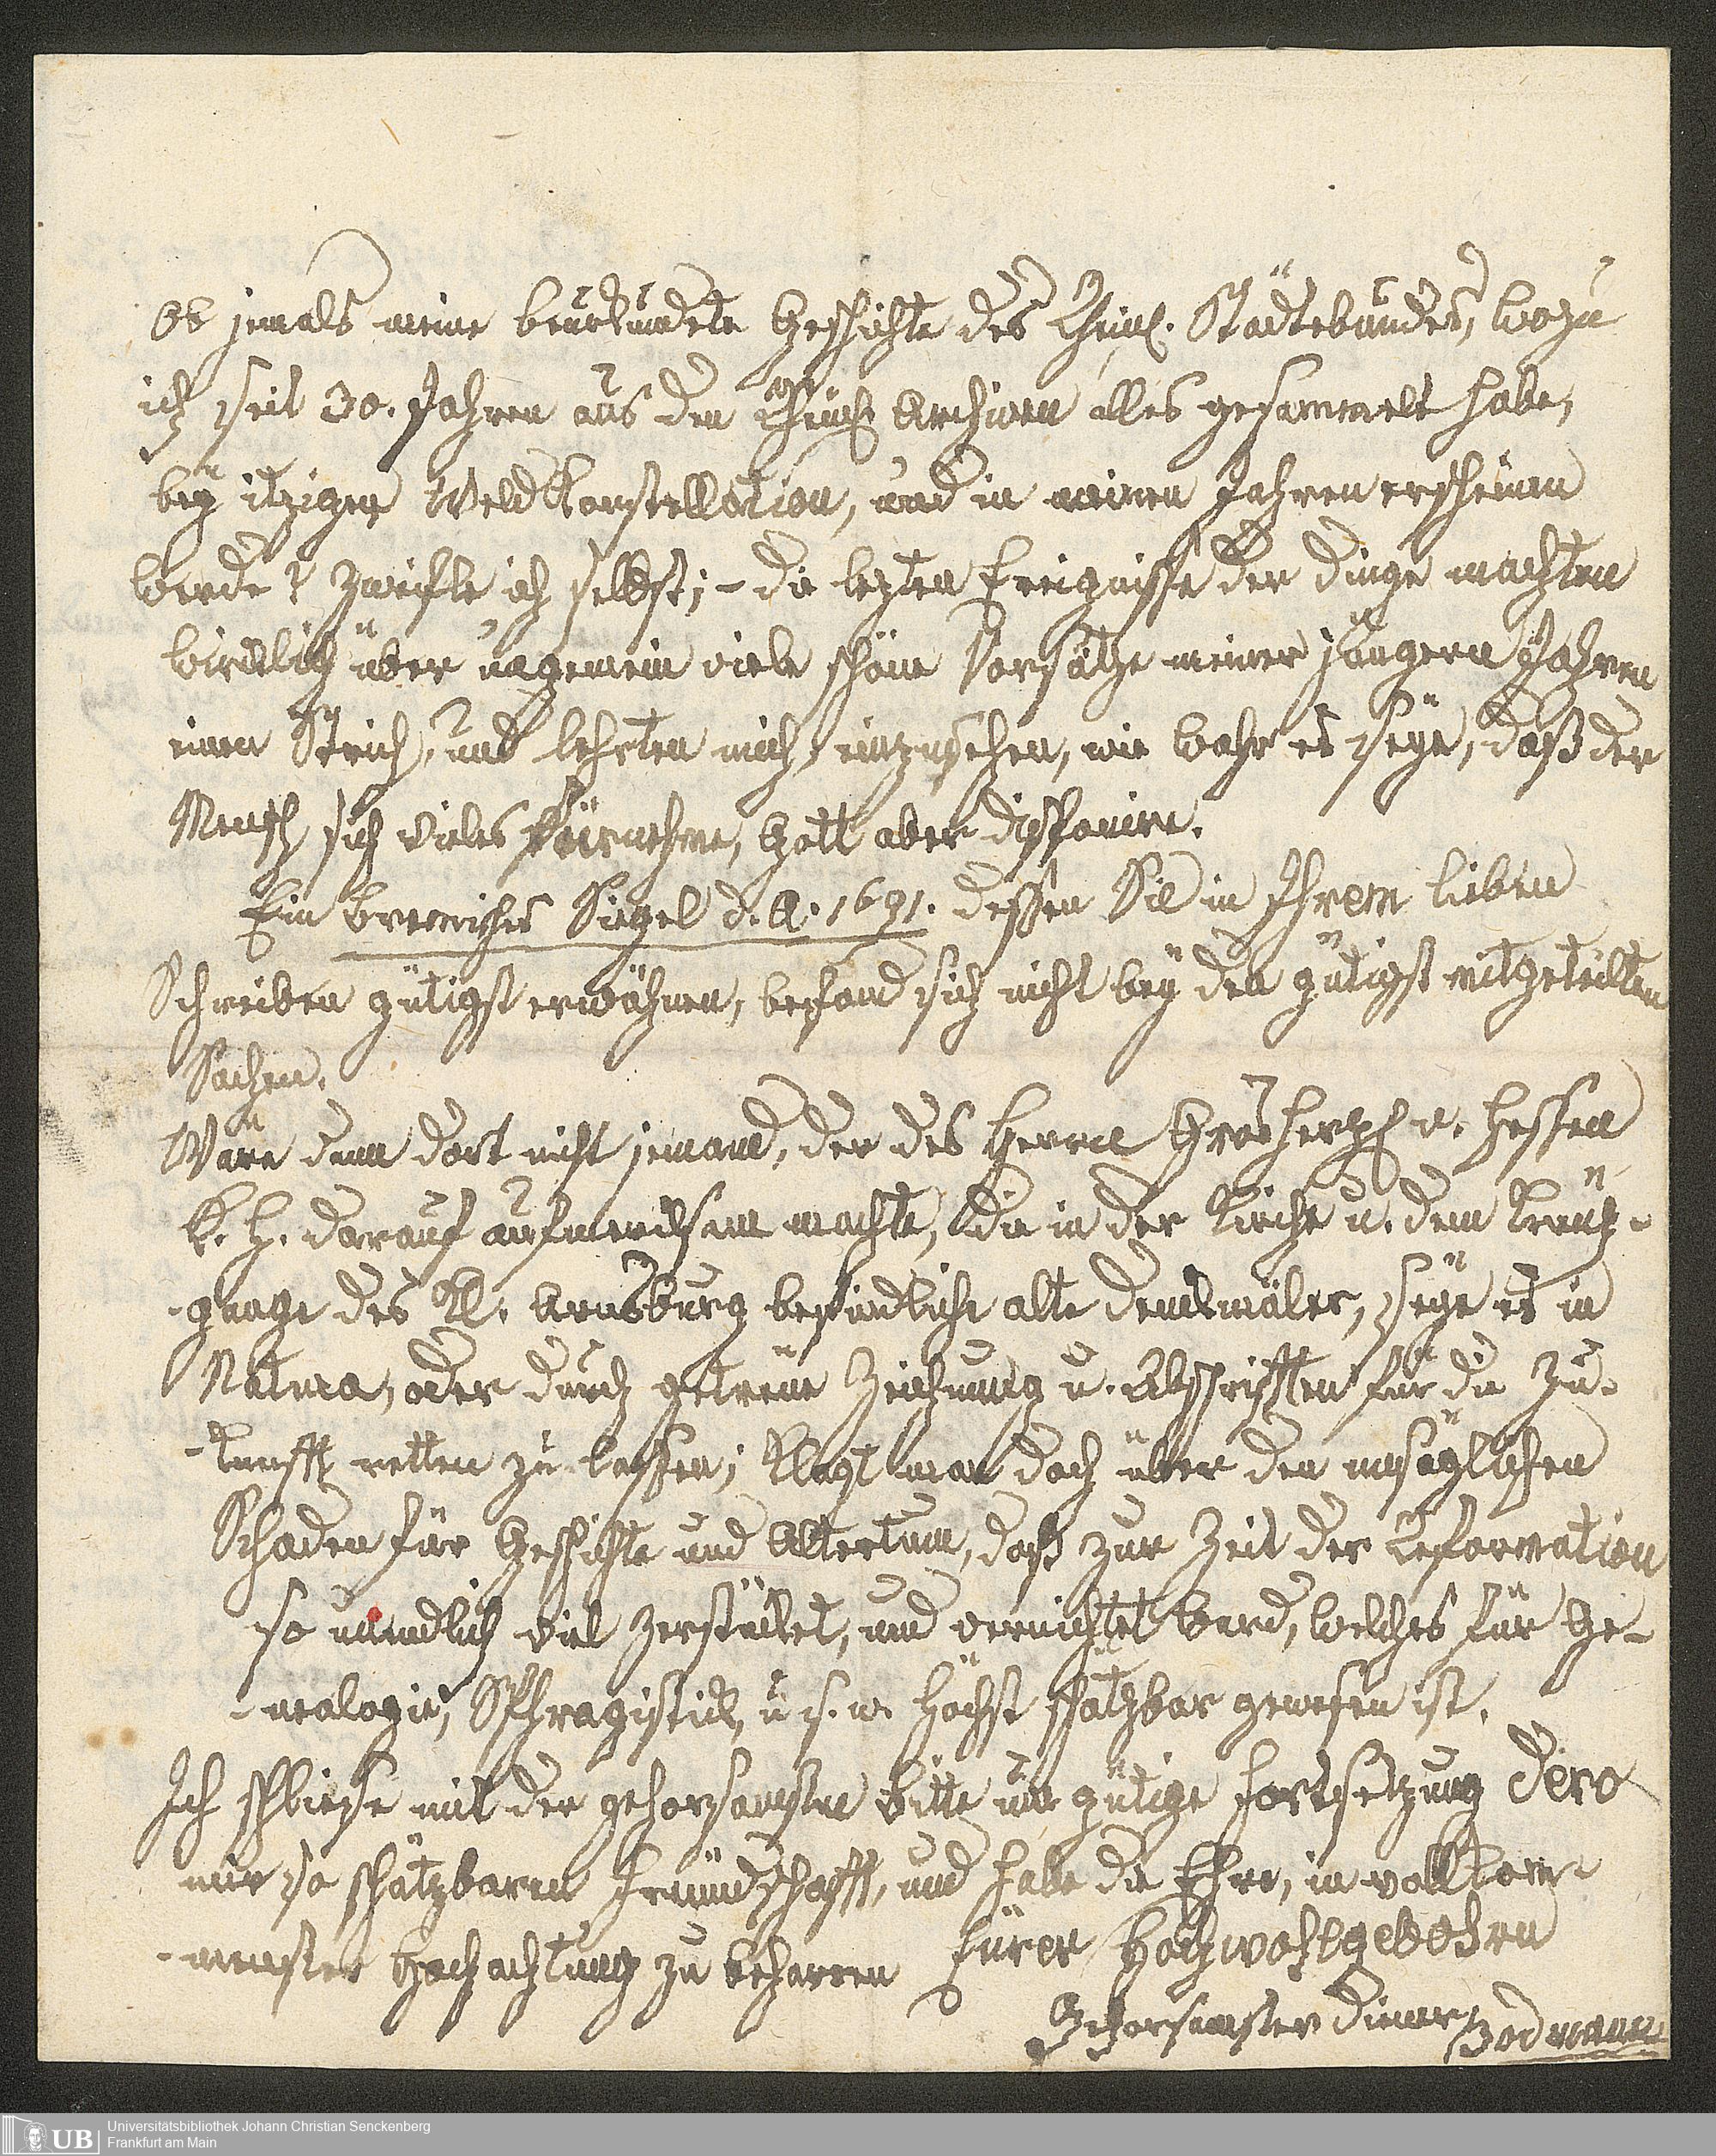 Ob jemals meine beurkundete Geschichte des Rheinl. Städtebundes, wozu
ich seit 30. Jahren aus den Rheinl. Archiven alles gesammelt habe,
bey itziger Weltkonstellation, und in meinen Jahren erscheinen
werde? zweifle ich selbst; – die lezten Ereignisse der Dinge machten
wirklich über ungemein viele schöne Vorsätze meiner jüngern Jahren
einen Strich, und lehrten mich, einzusehen, wie wahr es seye, daß der
Mensch sich vieles fürnehme, Gott aber disponire.
Ein Bremisches Siegel d. A. 1691. dessen Sie in Ihrem lieben
Schreiben gütigst erwähnen, befand sich nicht bey den gütigst mitgeteilten
Sachen.
Wäre denn dort nicht jemand, der des Herrn Grosherz. v. Hessen
K. H. darauf aufmerksam machte, die in der Kirche u. dem Kreutz-
-gange des Kl. Arnsburg befindliche alte Denkmäler, seye es in
Natura, oder durch getreue Zeichnung u. Abschrifften für die Zu-
-kunfft retten zu lassen; klagt man doch über den unsäglichen
Schaden für Geschichte und Altertum, daß zur Zeit der Reformation
so unendlich viel zerstückelt, und vernichtet ward, welches für Ge-
-nealogie, Sphragistick, u. s. w. höchst schätzbar gewesen ist.
Ich schliesse mit der gehorsamsten Bitte um gütige Fortsetzung Dero
mir so schätzbaren Freundschafft, und habe die Ehre, in vollkom-
-menster Hochachtung zu beharren Eurer Hochwohlgebohren
Gehorsamster Diener Bodmann
UB Universitätsbibliothek Johann Christian Senckenberg
Frankfurt am Main